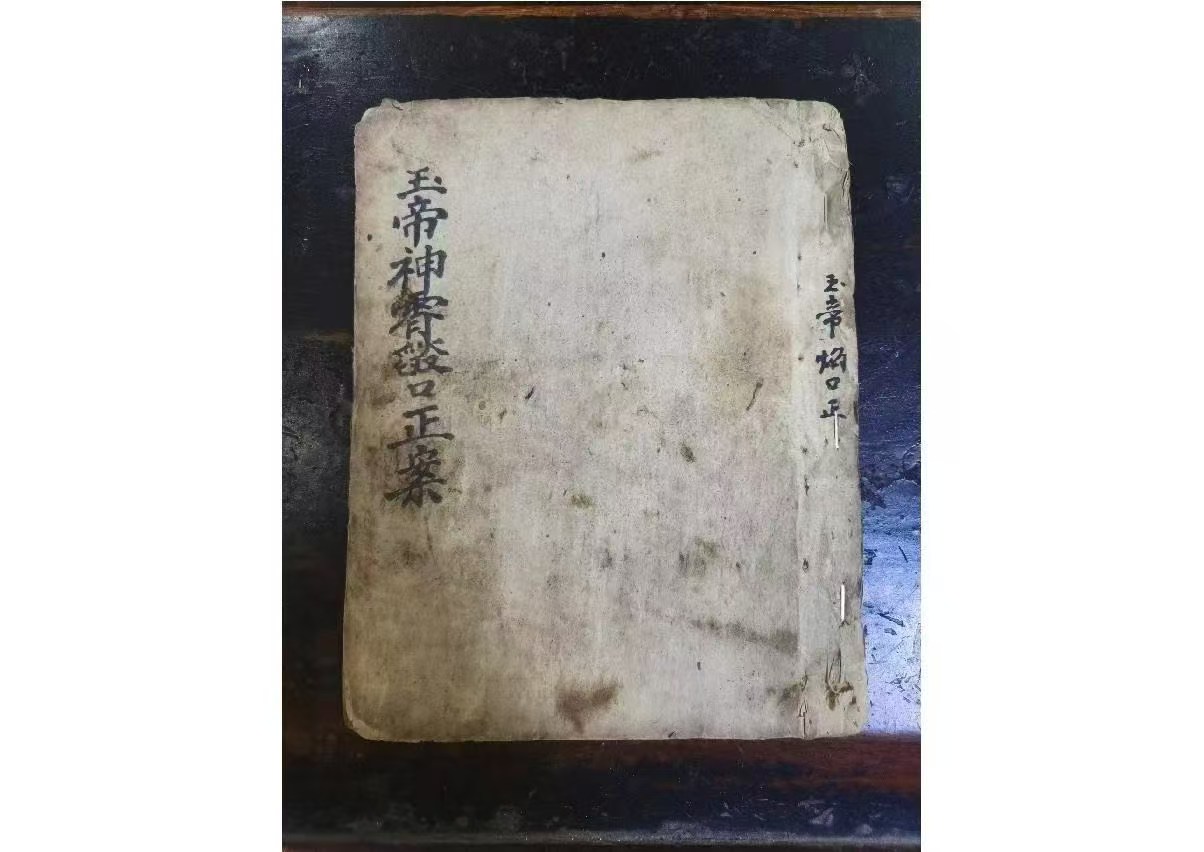 玉帝焰口正
玉帝神霄燄口正案